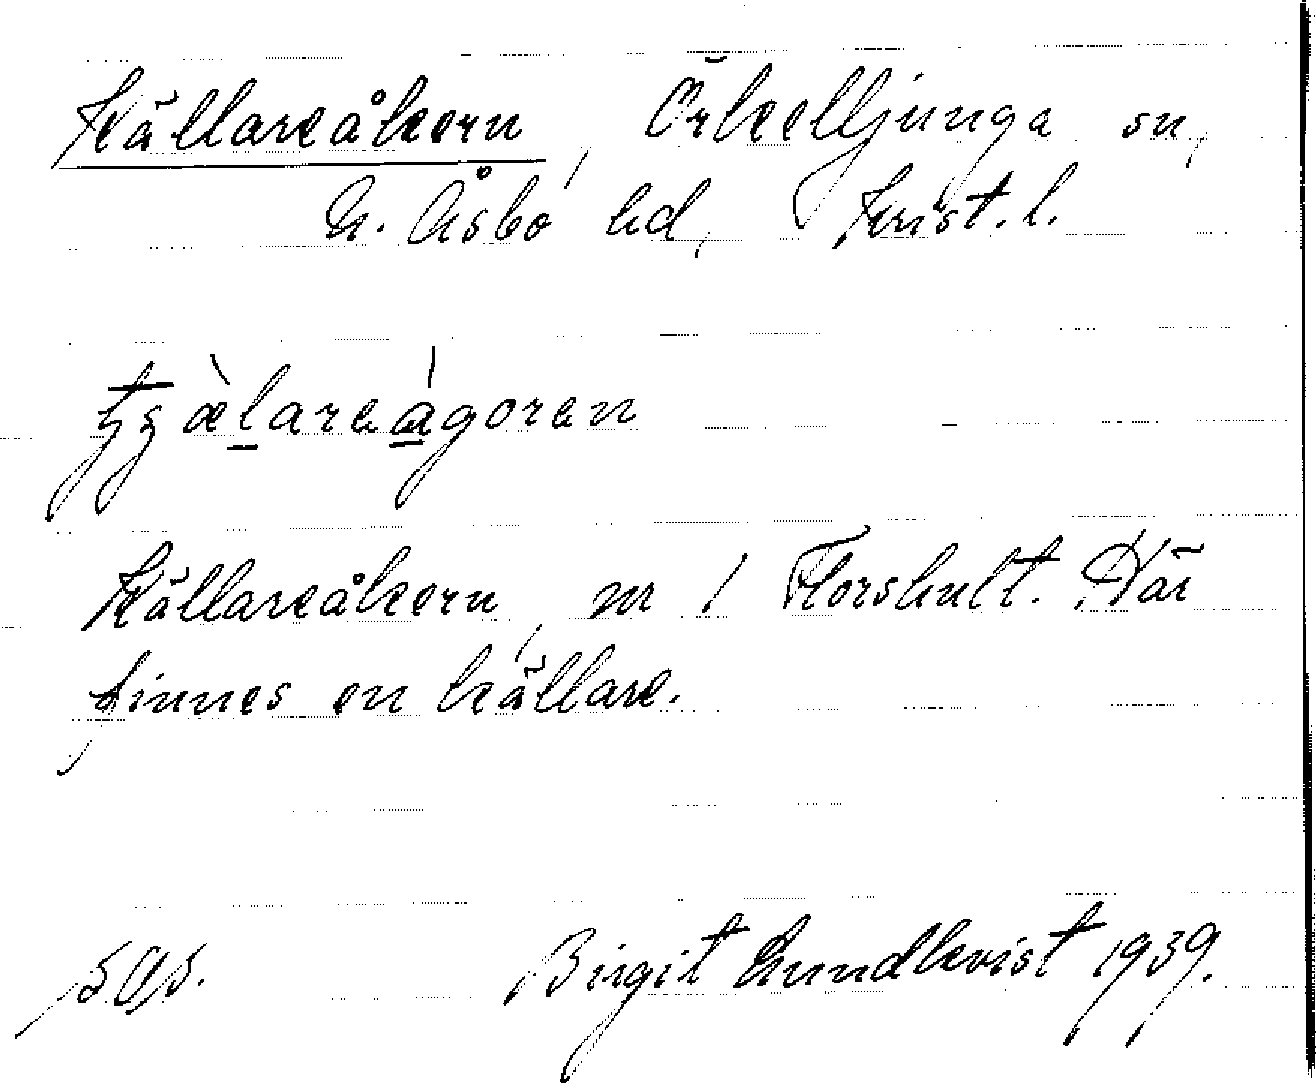 Källareåkern, Örkelljunga sn,
N. Åsbo hd, Krist. l.
tʒæ̀lareágoren
Källareåkern, nr 1 Florshult. Där
finnes en källare.
Birgit Lundkvist 1939.